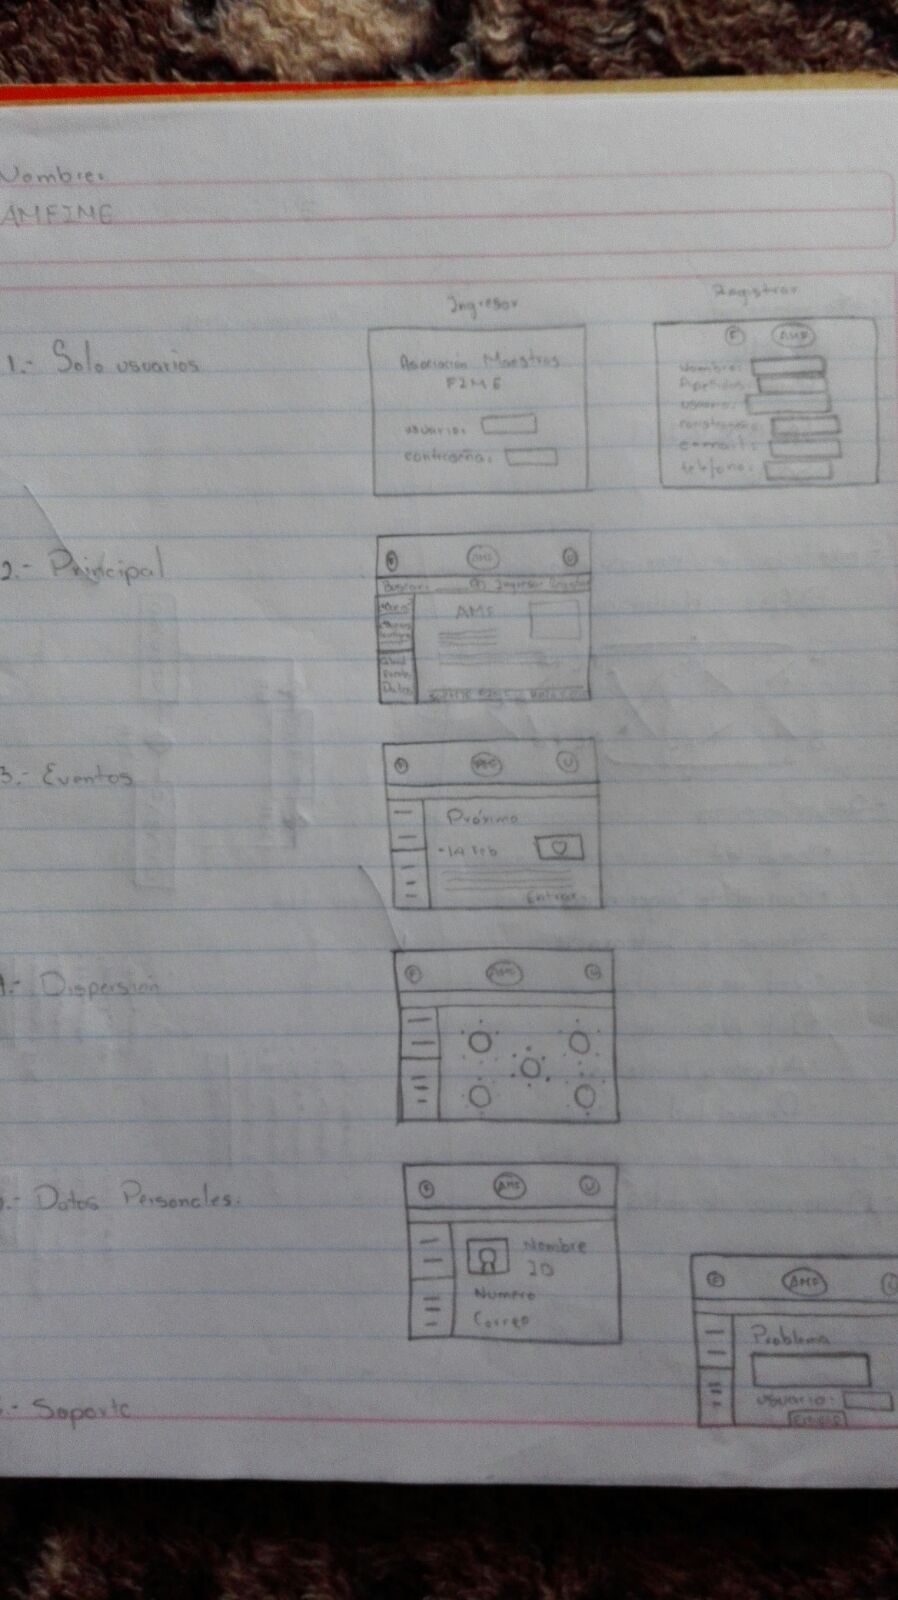 Nombre:
AMFIME
Ingresar
Registrar
1.- Solo usuarios
Asociación Maestros
FIME
usuario:
contraseña:
F
AMF
Nombre:
Apellidos:
usuario:
contraseña:
e-mail:
telefono:
2.- Principal
F
AMF
U
Buscar:
Ingresar Registrar
AMF
Datos
3.- Eventos
F
AMF
U
Próximo
-14 Feb
Entrar
.- Dispersión
F
AMF
U
.- Datos Personales.
F
AMF
U
Nombre
ID
Numero
Correo
.- Soporte
F
AMF
Problema
usuario: